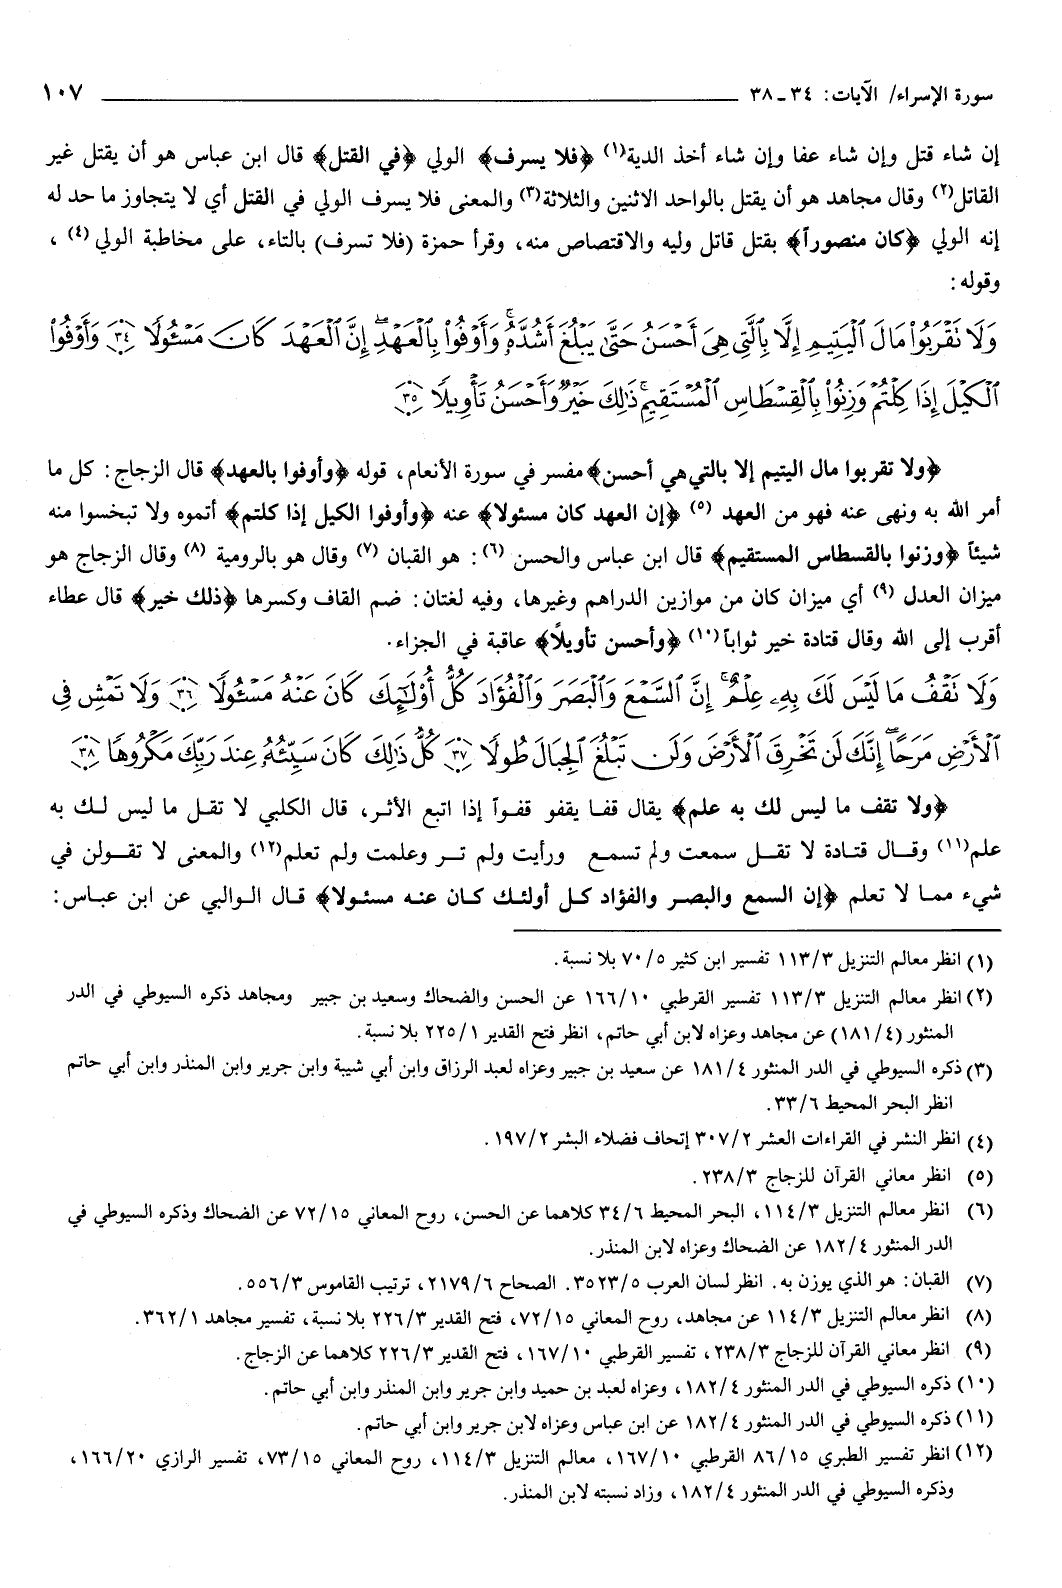 سورة الإسراء/ الآيات: ٣٤ ـ ٣٨ ١٠٧
إن شاء قتل وإن شاء عفا وإن شاء أخذ الدية(١) ﴿فلا يسرف﴾ الولي ﴿في القتل﴾ قال ابن عباس هو أن يقتل غير
القاتل(٢) وقال مجاهد هو أن يقتل بالواحد الاثنين والثلاثة(٣) والمعنى فلا يسرف الولي في القتل أي لا يتجاوز ما حد له
إنه الولي ﴿كان منصوراً﴾ بقتل قاتل وليه والاقتصاص منه، وقرأ حمزة (فلا تسرف) بالتاء، على مخاطبة الولي(٤) ،
وقوله:
وَلَا نَقْرَبُواْ مَالَ ٱلْيَتِيمِ إِلَّا بِٱلَّتِى هِىَ أَحْسَنُ حَتَّىٰ يَبْلُغَ أَشُدَّهُۥ ۚ وَأَوْفُواْ بِٱلْعَهْدِ ۖ إِنَّ ٱلْعَهْدَ كَانَ مَسْـُٔولًا ٣٤ وَأَوْفُواْ
ٱلْكَيْلَ إِذَا كِلْتُمْ وَزِنُواْ بِٱلْقِسْطَاسِ ٱلْمُسْتَقِيمِ ۚ ذَٰلِكَ خَيْرٌ وَأَحْسَنُ تَأْوِيلًا ٣٥
﴿ولا تقربوا مال اليتيم إلا بالتي هي أحسن﴾ مفسر في سورة الأنعام، قوله ﴿وأوفوا بالعهد﴾ قال الزجاج: كل ما
أمر الله به ونهى عنه فهو من العهد (٥) ﴿إن العهد كان مسئولا﴾ عنه ﴿وأوفوا الكيل إذا كلتم﴾ أتموه ولا تبخسوا منه
شيئاً ﴿وزنوا بالقسطاس المستقيم﴾ قال ابن عباس والحسن (٦): هو القبان (٧) وقال هو بالرومية (٨) وقال الزجاج هو
ميزان العدل (٩) أي ميزان كان من موازين الدراهم وغيرها، وفيه لغتان: ضم القاف وكسرها ﴿ذلك خير﴾ قال عطاء
أقرب إلى الله وقال قتادة خير ثواباً(١٠) ﴿وأحسن تأويلاً﴾ عاقبة في الجزاء.
وَلَا نَقْفُ مَا لَيْسَ لَكَ بِهِۦ عِلْمٌ ۚ إِنَّ ٱلسَّمْعَ وَٱلْبَصَرَ وَٱلْفُؤَادَ كُلُّ أُوْلَـٰٓئِكَ كَانَ عَنْهُ مَسْـُٔولًا ٣٦ وَلَا تَمْشِ فِى
ٱلْأَرْضِ مَرَحًا ۖ إِنَّكَ لَن تَخْرِقَ ٱلْأَرْضَ وَلَن تَبْلُغَ ٱلْجِبَالَ طُولًا ٣٧ كُلُّ ذَٰلِكَ كَانَ سَيِّئُهُۥ عِندَ رَبِّكَ مَكْرُوهًا ٣٨
﴿ولا تقف ما ليس لك به علم﴾ يقال قفا يقفو قفواً إذا اتبع الأثر، قال الكلبي لا تقل ما ليس لك به
علم(١١) وقال قتادة لا تقل سمعت ولم تسمع ورأيت ولم تر وعلمت ولم تعلم(١٢) والمعنى لا تقولن في
شيء مما لا تعلم ﴿إن السمع والبصر والفؤاد كل أولئك كان عنه مسئولا﴾ قال الوالبي عن ابن عباس:
(١) انظر معالم التنزيل ١١٣/٣ تفسير ابن كثير ٧٠/٥ بلا نسبة.
(٢) انظر معالم التنزيل ١١٣/٣ تفسير القرطبي ١٦٦/١٠ عن الحسن والضحاك وسعيد بن جبير ومجاهد ذكره السيوطي في الدر
المنثور (١٨١/٤) عن مجاهد وعزاه لابن أبي حاتم، انظر فتح القدير ٢٢٥/١ بلا نسبة.
(٣) ذكره السيوطي في الدر المنثور ١٨١/٤ عن سعيد بن جبير وعزاه لعبد الرزاق وابن أبي شيبة وابن جرير وابن المنذر وابن أبي حاتم
انظر البحر المحيط ٣٣/٦.
(٤) انظر النشر في القراءات العشر ٣٠٧/٢ إتحاف فضلاء البشر ١٩٧/٢.
(٥) انظر معاني القرآن للزجاج ٢٣٨/٣.
(٦) انظر معالم التنزيل ١١٤/٣، البحر المحيط ٣٤/٦ كلاهما عن الحسن، روح المعاني ٧٢/١٥ عن الضحاك وذكره السيوطي في
الدر المنثور ١٨٢/٤ عن الضحاك وعزاه لابن المنذر.
(٧) القبان: هو الذي يوزن به. انظر لسان العرب ٣٥٢٣/٥. الصحاح ٢١٧٩/٦، ترتيب القاموس ٥٥٦/٣.
(٨) انظر معالم التنزيل ١١٤/٣ عن مجاهد، روح المعاني ٧٢/١٥، فتح القدير ٢٢٦/٣ بلا نسبة، تفسير مجاهد ٣٦٢/١.
(٩) انظر معاني القرآن للزجاج ٢٣٨/٣، تفسير القرطبي ١٦٧/١٠، فتح القدير ٢٢٦/٣ كلاهما عن الزجاج.
(١٠) ذكره السيوطي في الدر المنثور ١٨٢/٤، وعزاه لعبد بن حميد وابن جرير وابن المنذر وابن أبي حاتم.
(١١) ذكره السيوطي في الدر المنثور ١٨٢/٤ عن ابن عباس وعزاه لابن جرير وابن أبي حاتم.
(١٢) انظر تفسير الطبري ٨٦/١٥ القرطبي ١٦٧/١٠، معالم التنزيل ١١٤/٣، روح المعاني ٧٣/١٥، تفسير الرازي ١٦٦/٢٠،
وذكره السيوطي في الدر المنثور ١٨٢/٤، وزاد نسبته لابن المنذر.